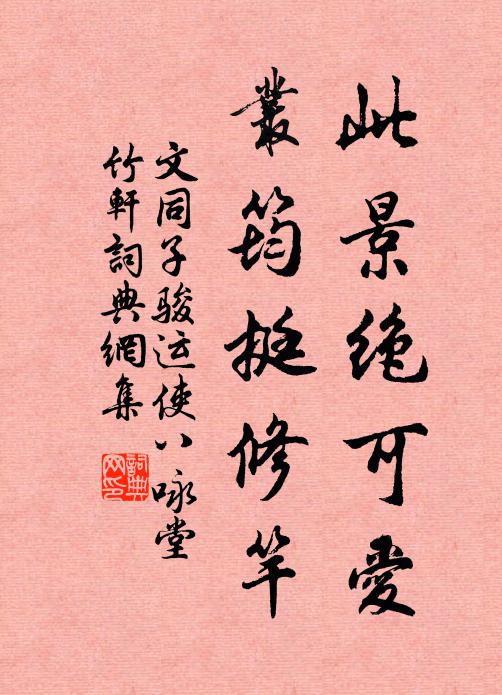 此景绝可爱
丛筠挺修竿
文同子骏运使八咏堂
竹軒詞典網集
詞典网印